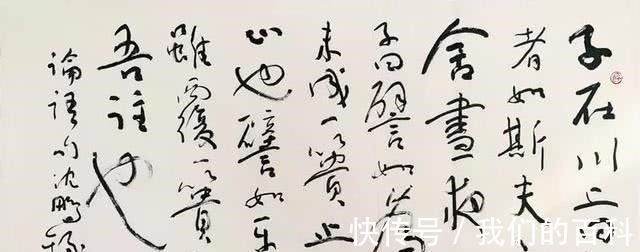 子在川上
者如斯夫
舍晝夜
子曰譬如為
未成一簣止
止也譬如平
雖覆一簣
吾往也
論語句沈鵬
快传号 / 我们的百科